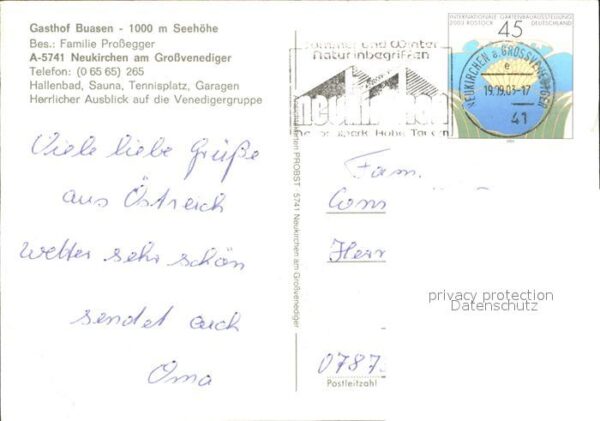 Gasthof Buasen - 1000 m Seehöhe
Bes.: Familie Proßegger
A-5741 Neukirchen am Großvenediger
Telefon: (0 65 65) 265
Hallenbad, Sauna, Tennisplatz, Garagen
Herrlicher Ausblick auf die Venedigergruppe
Viele liebe Grüße
aus Östreich
Wetter sehr schön
sendet auch
Oma
PROBST 5741 Neukirchen am Großvenediger
Sommer und Winter
Naturinbegriffen
neukirchen
Hohe Tauern
INTERNATIONALE GARTENBAUAUSSTELLUNG
2003 ROSTOCK DEUTSCHLAND
45
NEUKIRCHEN a. GROSSVENEDIGER
e
41
Fam.
Herr
0787
Postleitzahl
privacy protection
Datenschutz